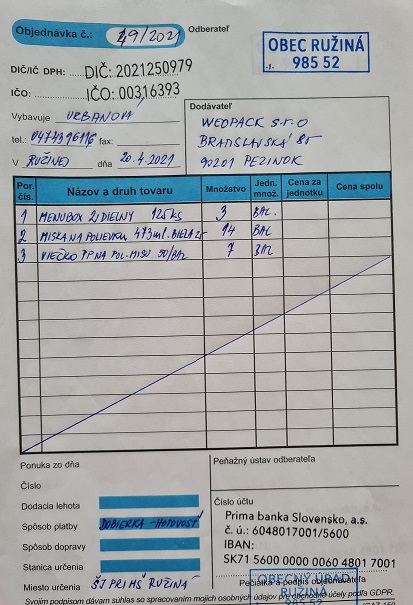 Objednávka č.: 49/2021 Odberateľ
OBEC RUŽINÁ
-1- 985 52
DIČ/IČ DPH: DIČ: 2021250979
IČO: IČO: 00316393
Vybavuje URBANOVÁ
Dodávateľ
WEDPACK s.r.o
tel.: 0477396116 fax:
BRATISLAVSKÁ 85
V RUŽINEJ dňa 20.4.2021
90201 PEZINOK
Por. čís. Názov a druh tovaru Množstvo Jedn. množ. Cena za jednotku Cena spolu
1 MENUBOX 2/DIELNY 125ks 3 BAL.
2 MISKA NA POLIEVKU 473ml. BIELA 25 14 BAL
3 VIEČKO PP NA POL. MISU 50/BAL 7 BAL
Ponuka zo dňa
Peňažný ústav odberateľa
Číslo
Číslo účtu
Dodacia lehota
Prima banka Slovensko, a.s.
Spôsob platby DOBIERKA - HOTOVOSŤ
č. ú.: 6048017001/5600
Spôsob dopravy
IBAN:
SK71 5600 0000 0060 4801 7001
Stanica určenia
Pečiatka a podpis objednávateľa
OBECNÝ ÚRAD
Miesto určenia ŠJ PRI MŠ RUŽINÁ
RUŽINÁ
Svojím podpisom dávam súhlas so spracovaním mojich osobných údajov pre obchodné účely podľa GDPR.